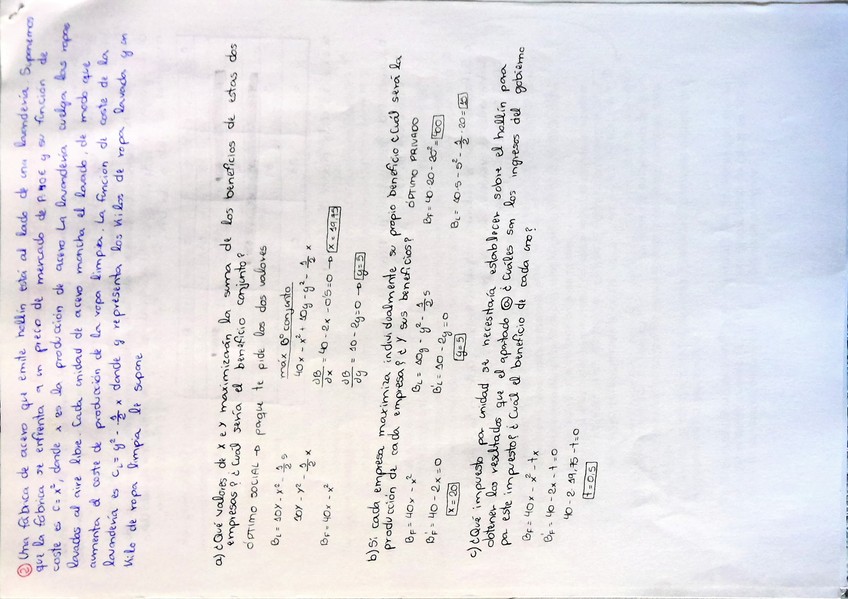 ② Una fábrica de acero que emite hollín está al lado de una lavandería. Suponemos
que la fábrica se enfrenta a un precio de mercado de P=40€ y su función de
coste es C=x², donde x es la producción de acero. La lavandería cuelga las ropas
lavadas al aire libre. Cada unidad de acero mancha el lavado, de modo que
aumenta el coste de producción de la ropa limpia. La función de coste de la
lavandería es C_L = y² - 1/2 x donde y representa los kilos de ropa lavada y un
kilo de ropa limpia se supone
a) ¿Qué valores de x e y maximizarán la suma de los beneficios de estas dos
empresas? ¿Cuál sería el beneficio conjunto?
ÓPTIMO SOCIAL → porque te pide los dos valores
B_L = 10y - y² - 1/2 s
10y - y² - 1/2 x
B_F = 40x - x²
máx Bº conjunto
40x - x² + 10y - y² - 1/2 x
∂B/∂x = 40 - 2x - 0'5 = 0 → x = 19,75
∂B/∂y = 10 - 2y = 0 → y = 5
b) Si cada empresa maximiza individualmente su propio beneficio ¿Cuál será la
producción de cada empresa? ¿Y sus beneficios?
B_F = 40x - x²
B'_F = 40 - 2x = 0
x = 20
B_L = 10y - y² - 1/2 s
B'_L = 10 - 2y = 0
y = 5
ÓPTIMO PRIVADO
B_F = 40·20 - 20² = 400
B_L = 10·5 - 5² - 1/2 · 20 = 15
c) ¿Qué impuesto por unidad se necesitaría establecer sobre el hollín para
obtener los resultados que el apartado ⓐ ¿Cuáles son los ingresos del gobierno
por este impuesto? ¿Cuál el beneficio de cada uno?
B_F = 40x - x² - tx
B'_F = 40 - 2x - t = 0
40 - 2·19,75 - t = 0
t = 0,5